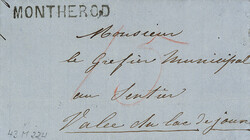 MONTHEROD
Monsieur
le Grefier Municipal
au Sentier
Valee du lac de joux
43 M 224